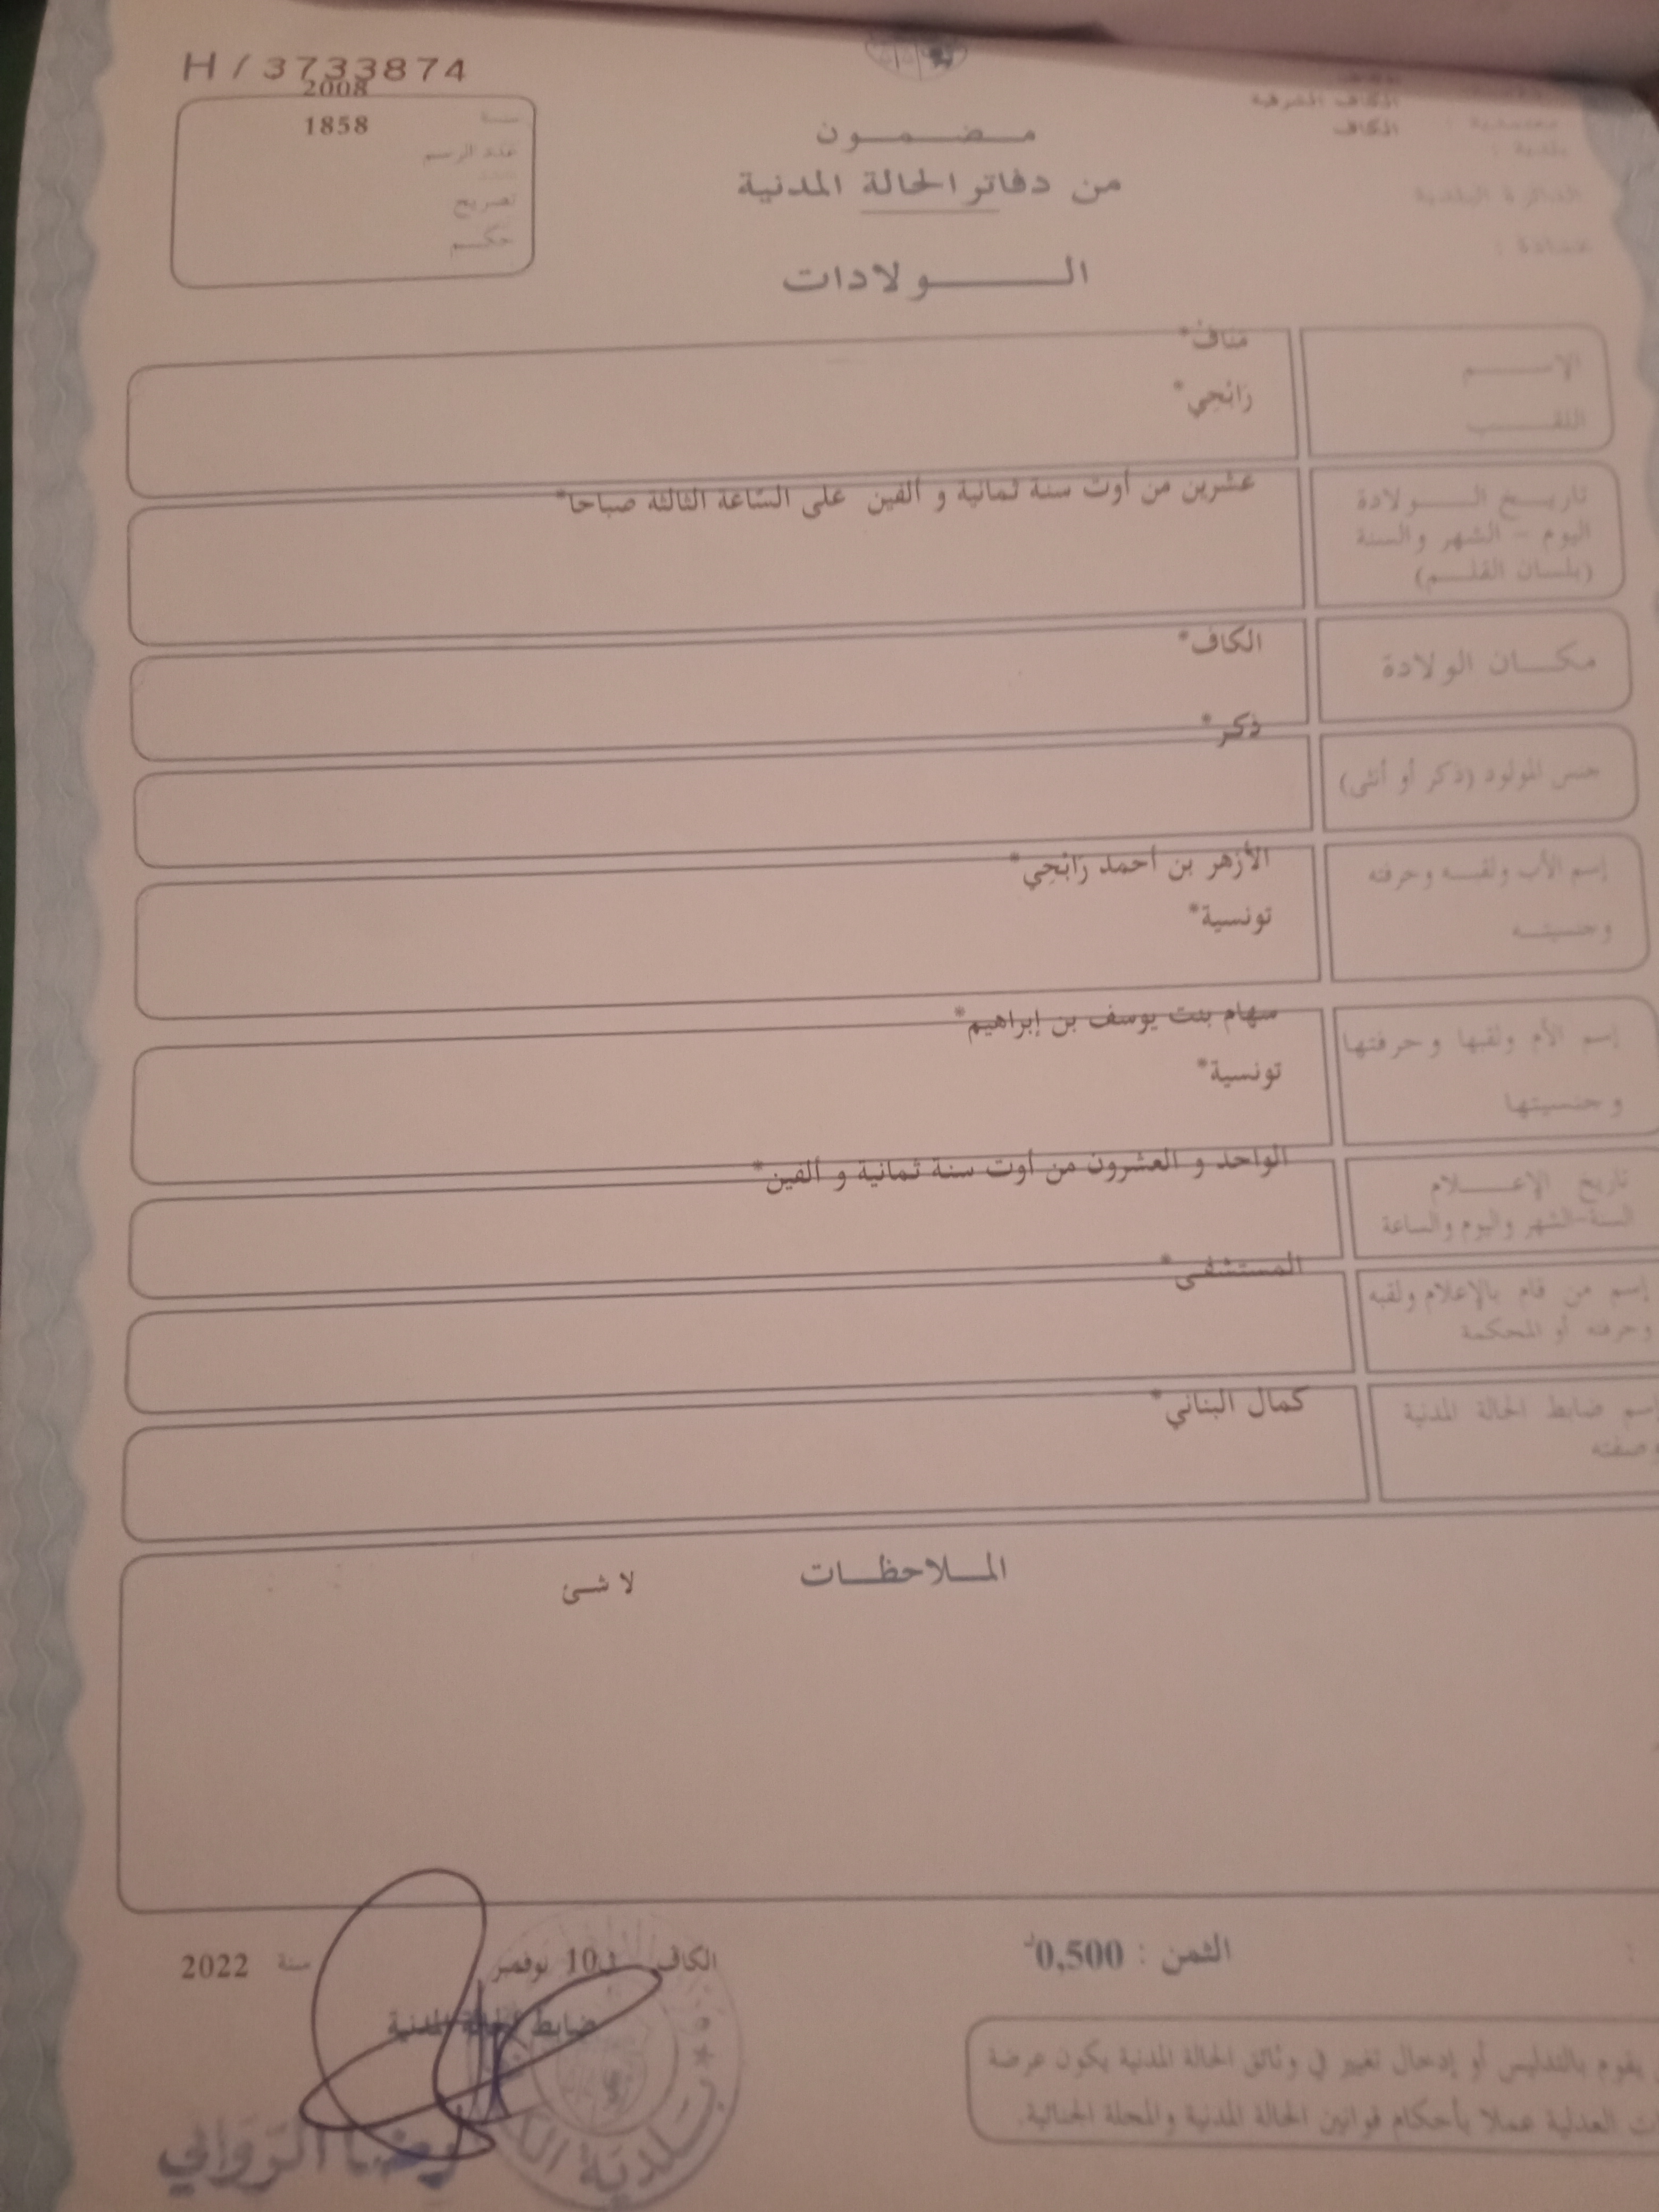 H / 3733874
2008
سنة
1858
عدد الرسم
تصريح
حكم
الكاف الشرقية
الكاف
معتمدية :
بلدية :
الدائرة البلدية
عمادة :
مضمون
من دفاتر الحالة المدنية
الولادات
الإسم
مناف*
اللقب
رَابْحِي*
تاريخ الولادة
اليوم - الشهر والسنة
(بلسان القلم)
عشرين من أوت سنة ثمانية و ألفين على السّاعة الثالثة صباحا*
مكان الولادة
الكاف*
جنس المولود (ذكر أو أنثى)
ذكر*
إسم الأب ولقبه وحرفته
وجنسيته
الأزهر بن أحمد رَابْحِي*
تونسية*
إسم الأم ولقبها وحرفتها
وجنسيتها
سهام بنت يوسف بن إبراهيم*
تونسية*
تاريخ الإعلام
السنة-الشهر واليوم والساعة
الواحد و العشرون من أوت سنة ثمانية و ألفين*
إسم من قام بالإعلام ولقبه
وحرفته أو المحكمة
المستشفى*
إسم ضابط الحالة المدنية
وصفته
كمال البناني*
الملاحظات
لا شئ
الثمن : 0,500د
الكاف في 10 نوفمبر سنة 2022
ضابط الحالة المدنية
يقوم بالتدليس أو إدخال تغيير في وثائق الحالة المدنية يكون عرضة
العدلية عملا بأحكام قوانين الحالة المدنية والمجلة الجنائية.
بلدية